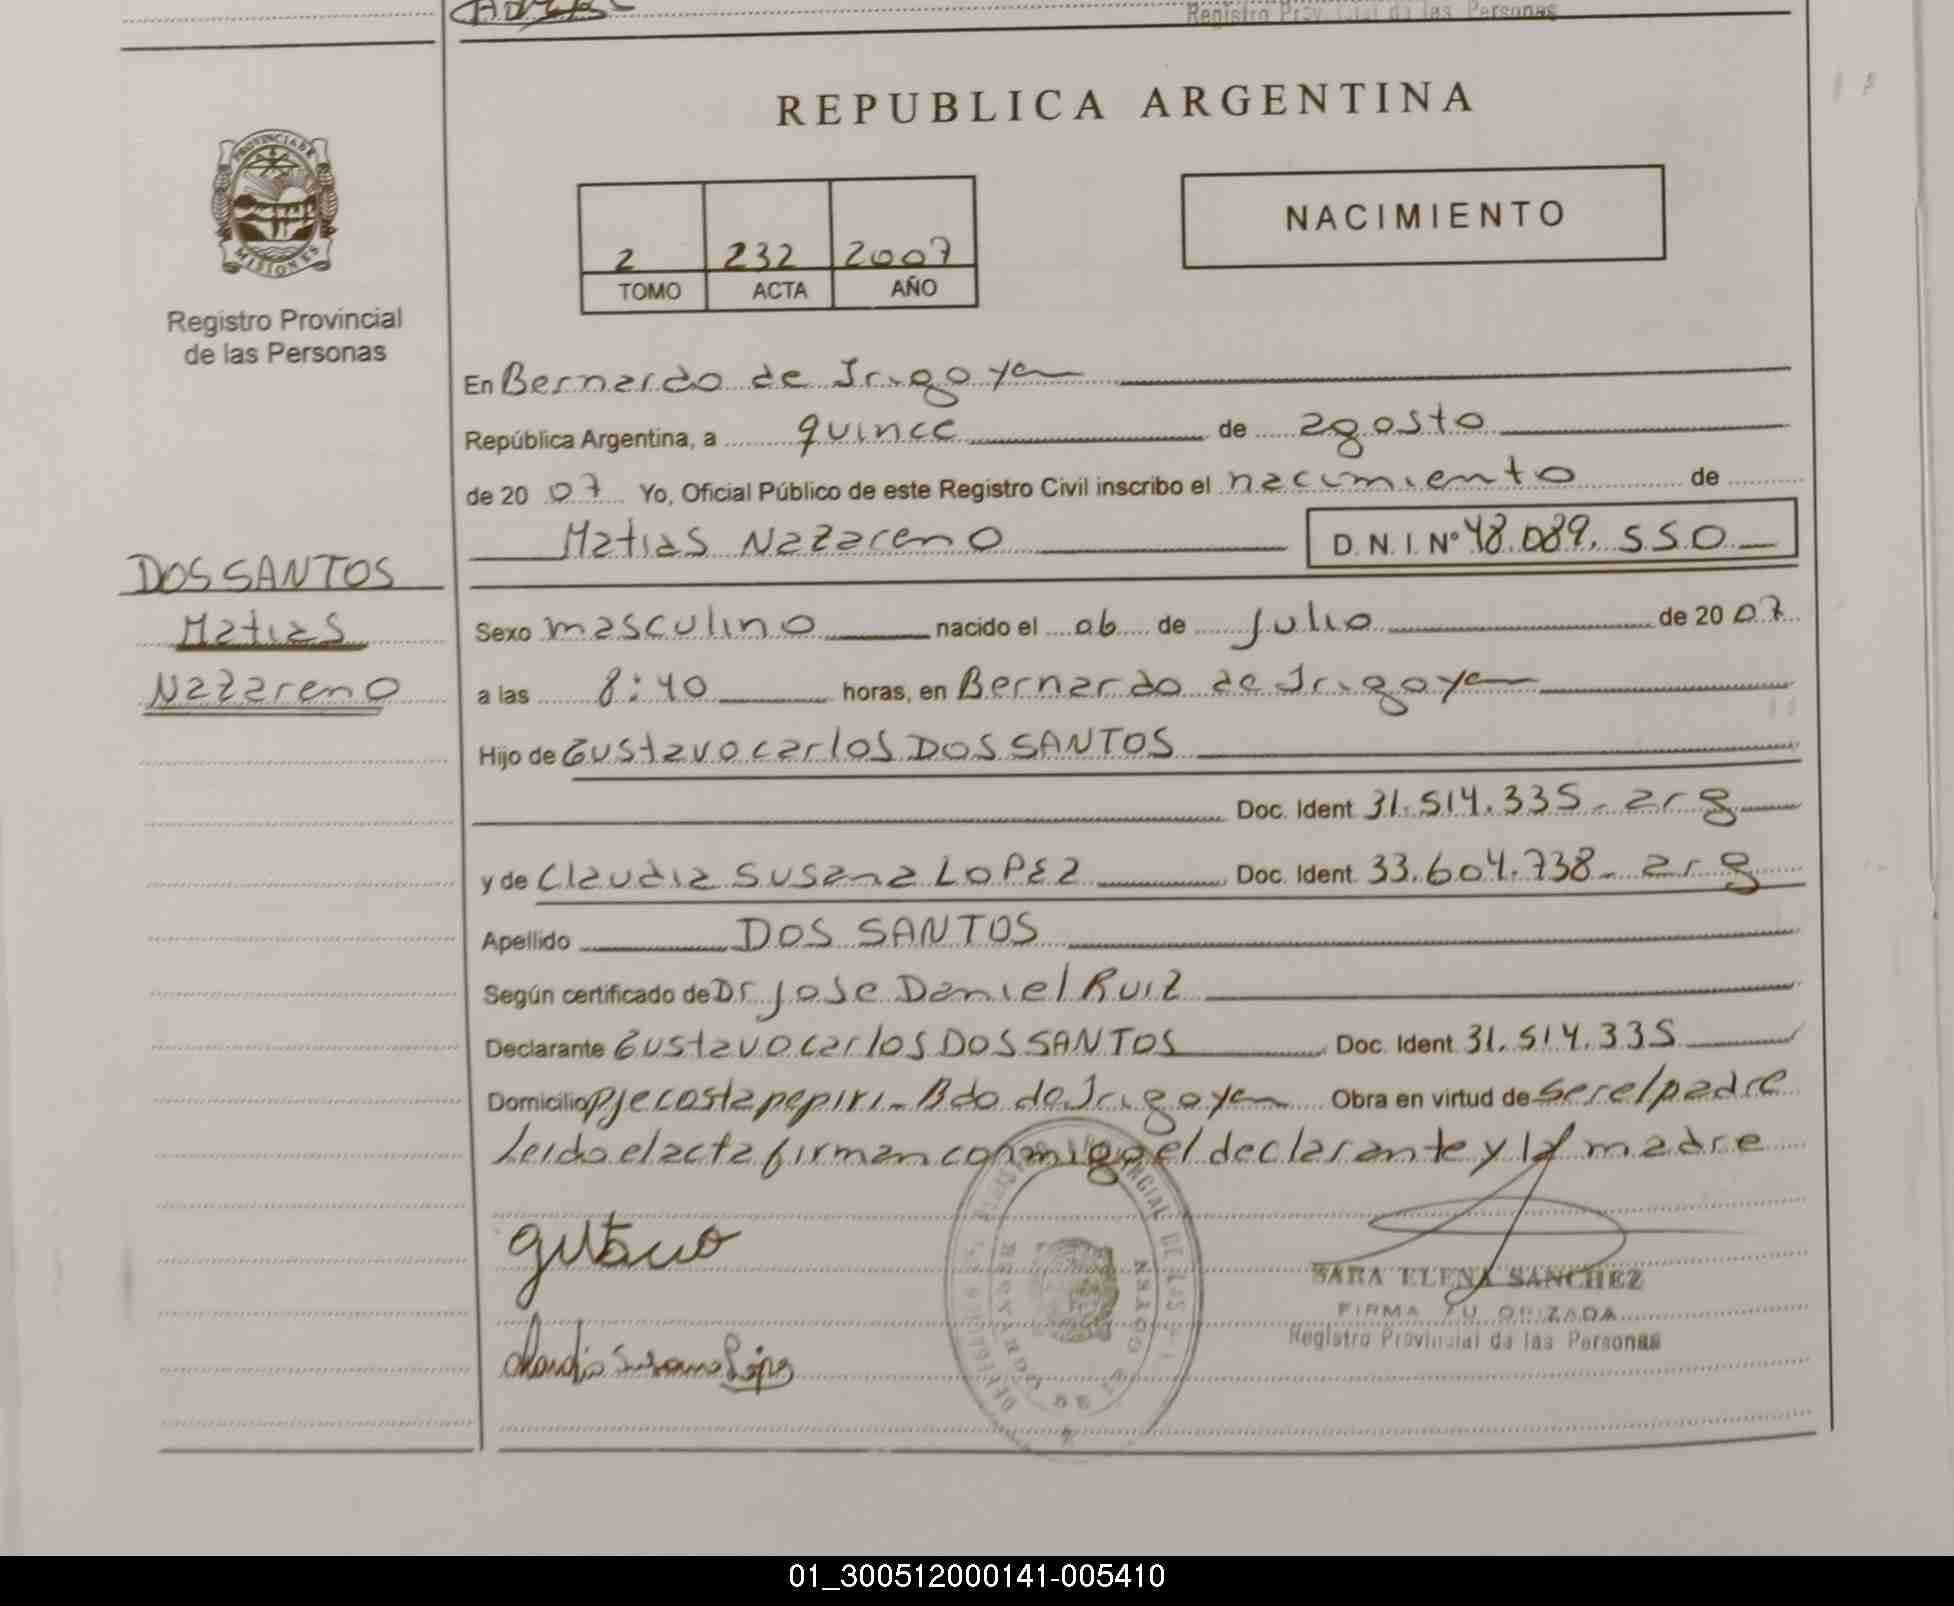 Registro Prov cial da las Personas
REPUBLICA ARGENTINA
PROVINCIA DE
MISIONES
Registro Provincial
de las Personas
2 232 2007
TOMO ACTA AÑO
NACIMIENTO
En Bernardo de Irigoyen
República Argentina, a quince de agosto
de 20 07 Yo, Oficial Público de este Registro Civil inscribo el nacimiento de
Matias Nazareno D.N.I. Nº 48.089.550
DOS SANTOS
Matias
Nazareno
Sexo masculino nacido el 06 de julio de 20 07
a las 8:40 horas, en Bernardo de Irigoyen
Hijo de Gustavo carlos DOS SANTOS
Doc. Ident. 31.514.335 - arg
y de Claudia Susana LOPEZ Doc. Ident. 33.604.738 - arg
Apellido DOS SANTOS
Según certificado de Dr Jose Daniel Ruiz
Declarante Gustavo carlos DOS SANTOS Doc. Ident. 31.514.335
Domicilio Pje costa pepiri - Bdo de Irigoyen Obra en virtud de ser el padre
Leido el acta firman conmigo el declarante y la madre
gustavo
SARA ELENA SANCHEZ
FIRMA AUTORIZADA
Registro Provincial da las Personas
Claudia Susana López
01_300512000141-005410